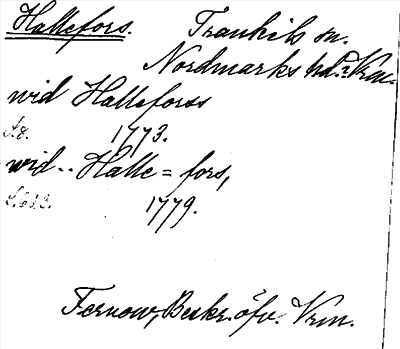 Hallefors. Trankils sn.
Nordmarks hd. Vrm.
wid Halleforss
s.8. 1773.
wid .. Halle=fors,
s.613. 1779.
Fernow, Beskr. öfv. Vrm.